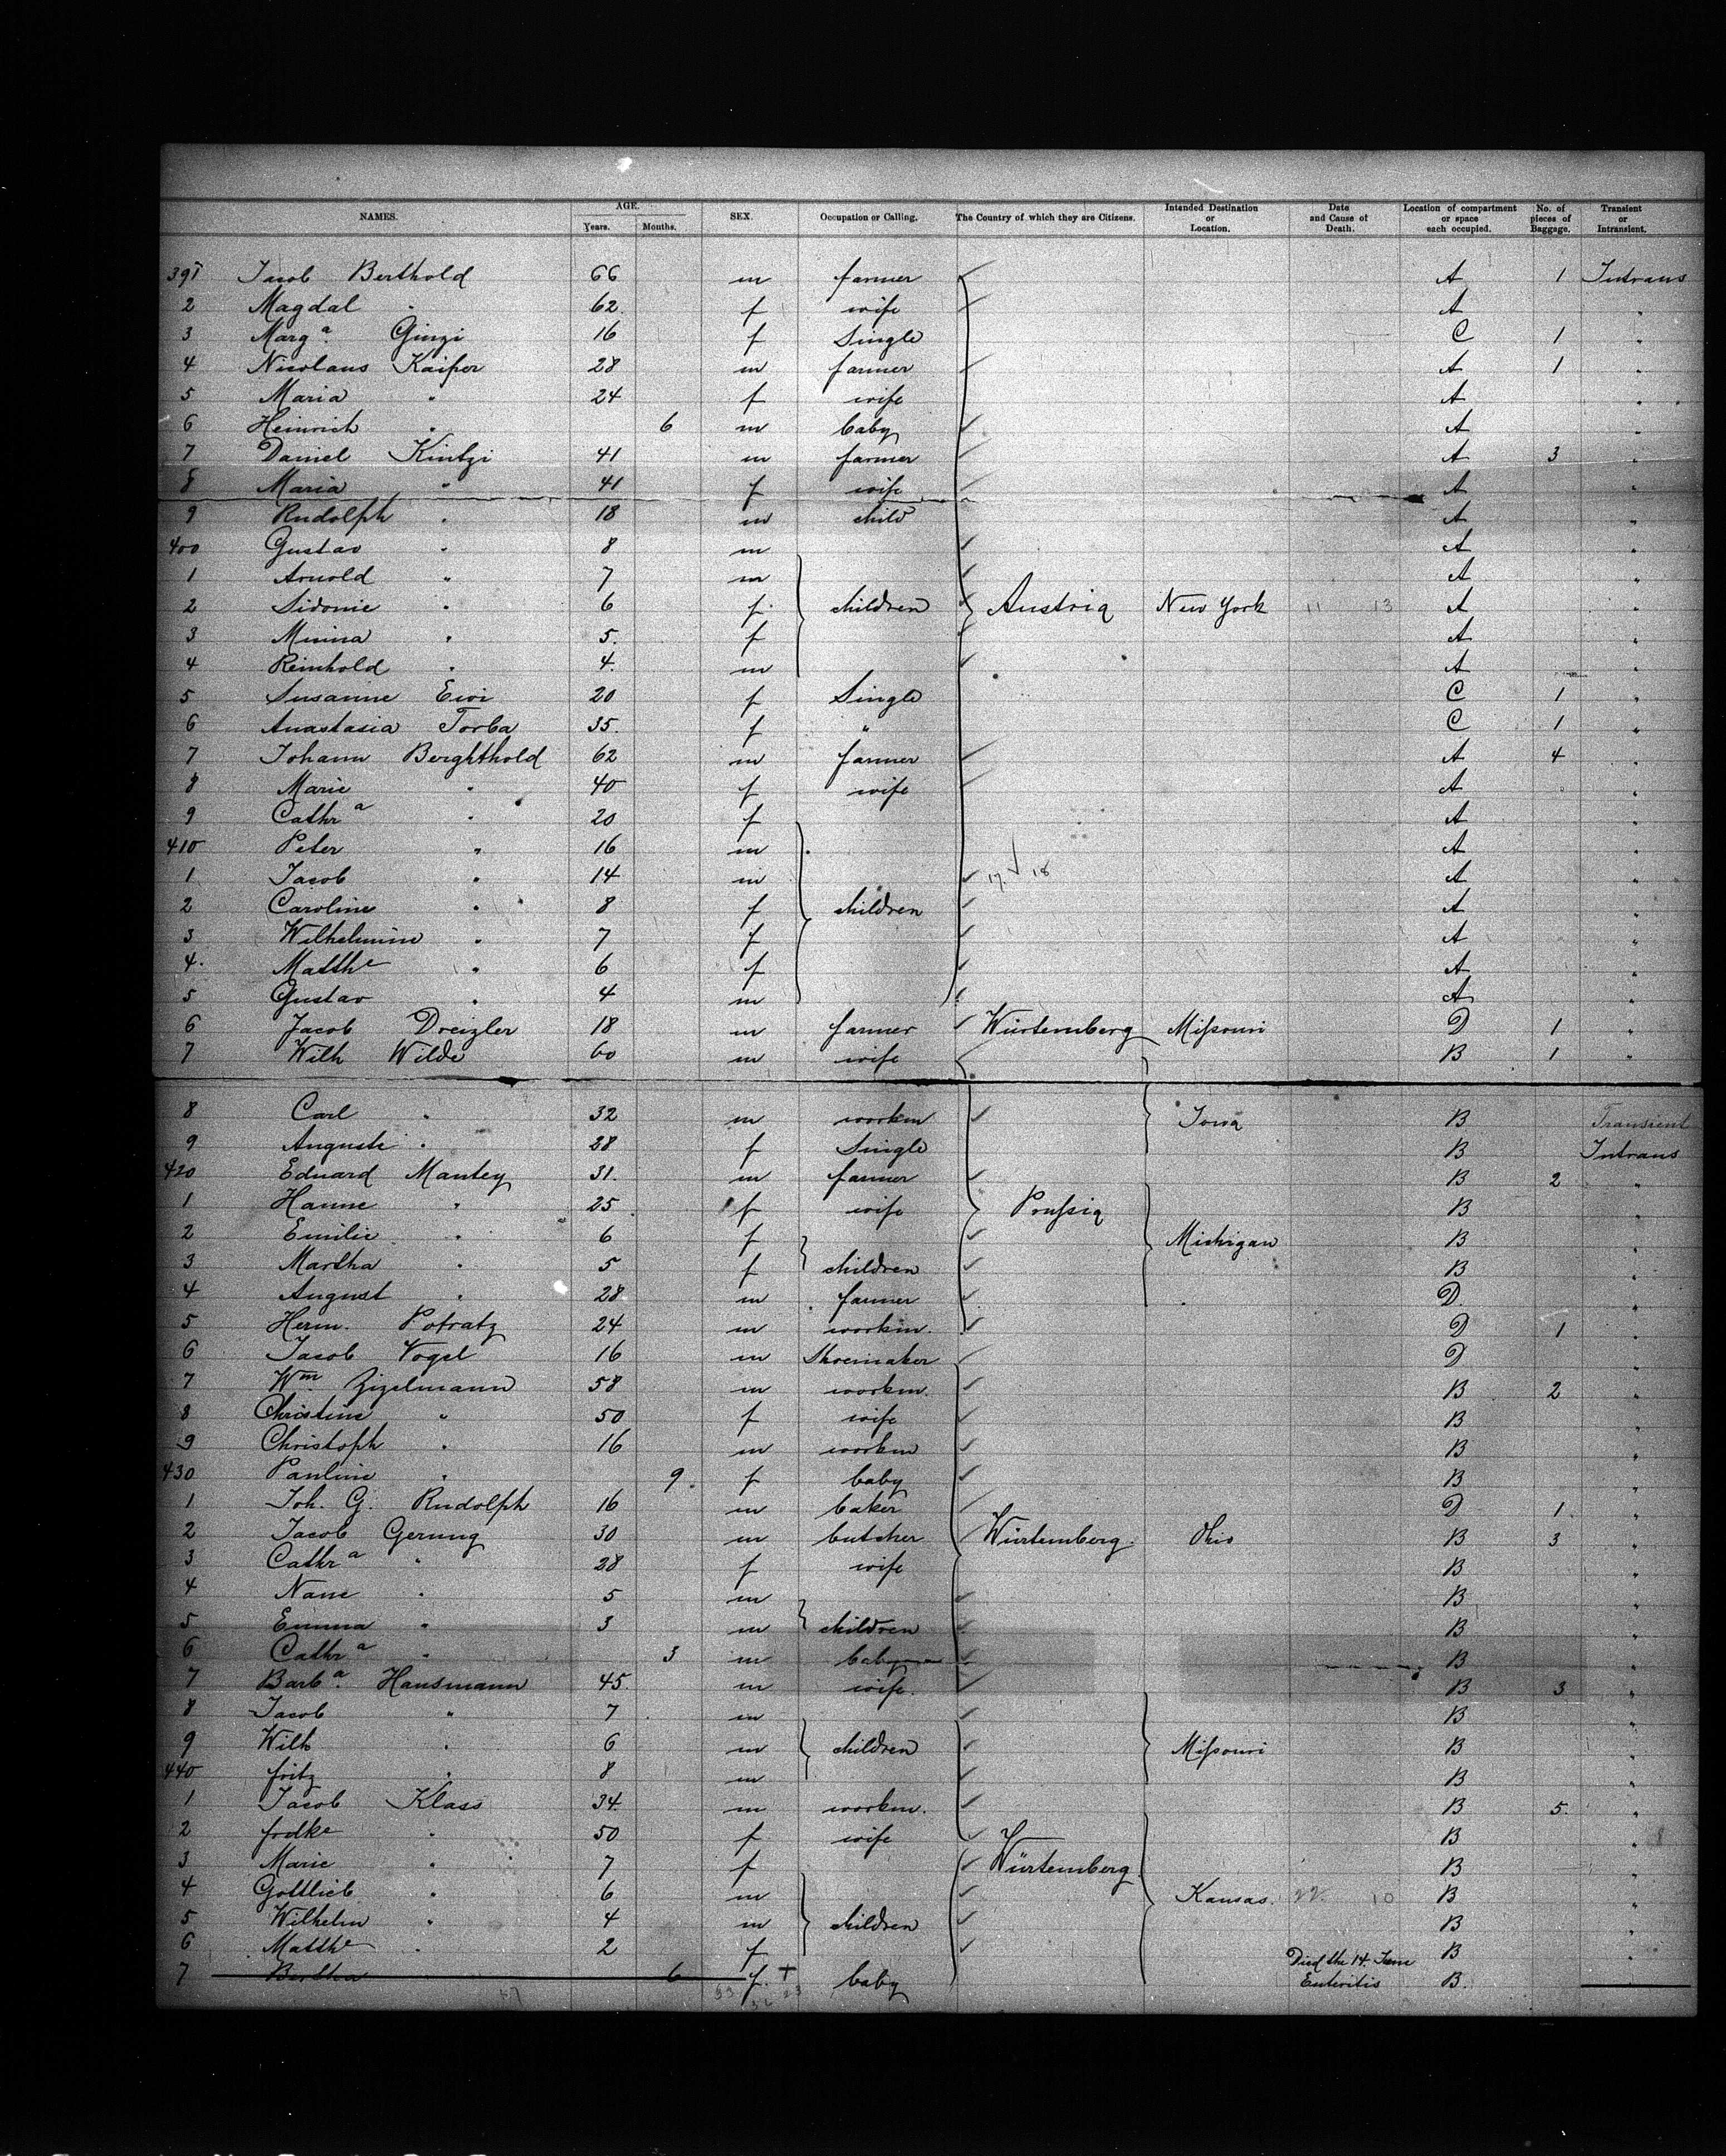 NAMES. AGE. Years. Months. SEX. Occupation or Calling. The Country of which they are Citizens. Intended Destination or Location. Date and Cause of Death. Location of compartment or space each occupied. No. of pieces of Baggage. Transient or Intransient.
391 Jacob Berthold 66 m farmer A 1 Intrans
2 Magdal " 62 f wife A "
3 Marg.a Ginzi 16 f Single C 1 "
4 Nicolaus Kaiser 28 m farmer A 1 "
5 Maria " 24 f wife A "
6 Heinrich " 6 m baby A "
7 Daniel Kintzi 41 m farmer A 3 "
8 Maria " 41 f wife A "
9 Rudolph " 18 m child A "
400 Gustav " 8 m A "
1 Arnold " 7 m A "
2 Sidonie " 6 f children Austria New York 11 13 A "
3 Minna " 5 f A "
4 Reinhold " 4 m A "
5 Susanne Ewi 20 f Single C 1 "
6 Anastasia Torba 35 f " C 1 "
7 Johann Berghthold 62 m farmer A 4 "
8 Marie " 40 f wife A "
9 Cathr a " 20 f A "
410 Peter " 16 m A "
1 Jacob " 14 m 17 18 A "
2 Caroline " 8 f children A "
3 Wilhelmine " 7 f A "
4 Matthe " 6 f A "
5 Gustav " 4 m A "
6 Jacob Dreizler 18 m farmer Würtemberg Missouri D 1 "
7 Wilh Wilde 60 m wife B 1 "
8 Carl " 32 m workm Iowa B Transient
9 Auguste " 28 f Single B Intrans
420 Eduard Mantey 31 m farmer B 2 "
1 Hanne " 25 f wife Prussia B "
2 Emilie " 6 f Michigan B "
3 Martha " 5 f children B "
4 August " 28 m farmer D "
5 Herm. Potratz 24 m workm. D 1 "
6 Jacob Vogel 16 m Shoemaker D "
7 Wm Zizelmann 58 m workm. B 2 "
8 Christine " 50 f wife B "
9 Christoph " 16 m workm B "
430 Pauline " 9 f baby B "
1 Joh. G. Rudolph 16 m baker D 1 "
2 Jacob Gerung 30 m butcher Würtemberg Ohio B 3 "
3 Cathr a " 28 f wife B "
4 Nane " 5 m B "
5 Emma " 3 m children B "
6 Cathr a " 3 m baby B "
7 Barb.a Hausmann 45 m wife B 3 "
8 Jacob " 7 m B "
9 Wilh " 6 m children Missouri B "
440 fritz " 8 m B "
1 Jacob Klass 34 m workm. B 5 "
2 frdke " 50 f wife B "
3 Marie " 7 f Würtemberg B "
4 Gottlieb " 6 m Kansas 22 10 B "
5 Wilhelm " 4 m children B "
6 Matthe " 2 f B "
7 Bertha 6 f. + baby Died the 14. June Enteritis B.